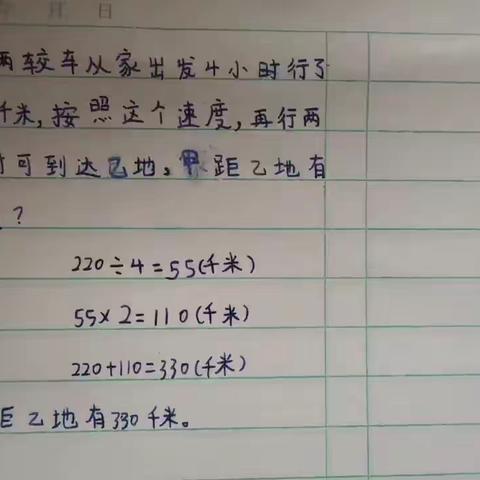 月 日
两较车从家出发4小时行了
千米,按照这个速度,再行两
可到达乙地,甲距乙地有
?
220÷4=55(千米)
55×2=110(千米)
220+110=330(千米)
距乙地有330千米。